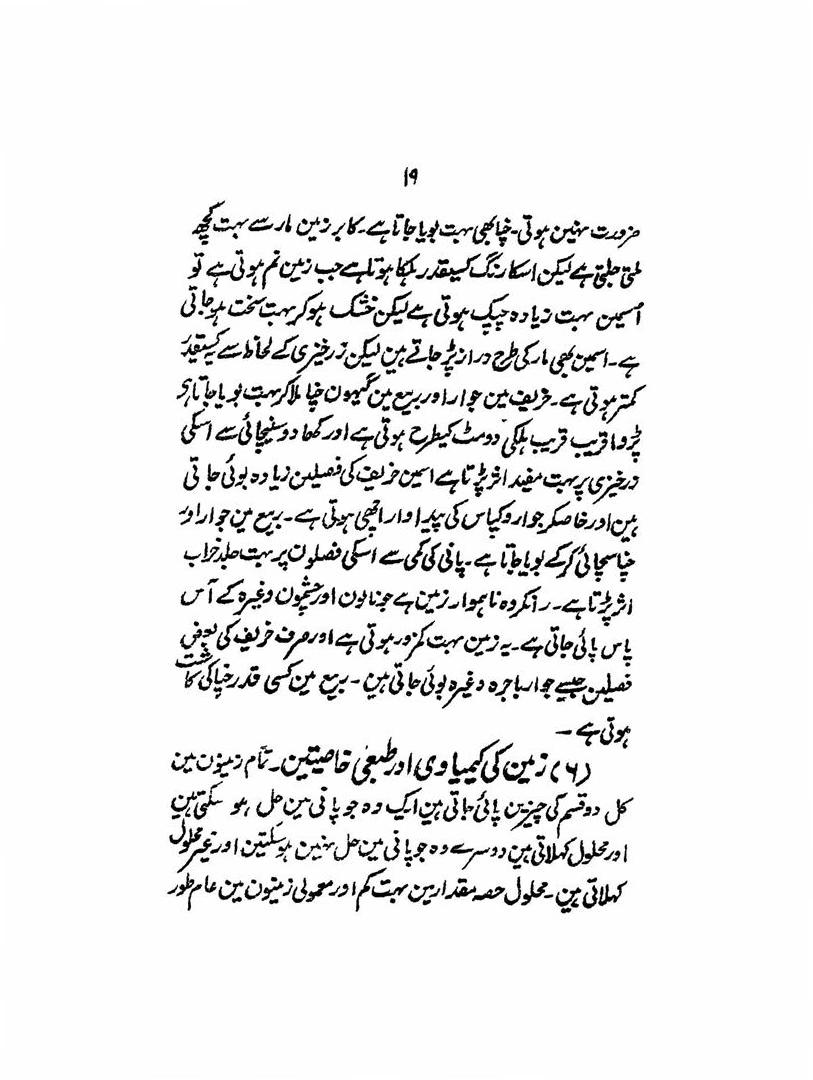 ۱۹
ضرورت نہین ہوتی۔ چنا بھی بہت بویا جاتا ہے۔ کابر زمین مار سے بہت کچھ
ملتی جلتی ہے لیکن اسکا رنگ کسیقدر ہلکا ہوتا ہے جب زمین نم ہوتی ہے تو
اسمین بہت زیادہ چپک ہوتی ہے لیکن خشک ہو کر بہت سخت ہو جاتی
ہے۔ اسمین بھی مار کی طرح دراز پڑ جاتے ہین لیکن زرخیزی کے لحاظ سے کسیقدر
کمتر ہوتی ہے۔ خریف مین جوار اور ربیع مین گیہون چنا ملا کر بہت بویا جاتا ہی
پڑوا قریب قریب ہلکی دومٹ کیطرح ہوتی ہے اور کھاد و سنیچائی سے اسکی
زرخیزی پر بہت مفید اثر پڑتا ہے اسمین خریف کی فصیلین زیادہ بوئی جاتی
ہین اور خاصکر جوار و کپاس کی پیداوار اچھی ہوتی ہے۔ ربیع مین جوار اور
چنا سچائی کر کے بویا جاتا ہے۔ پانی کی کمی سے اسکی فصلون پر بہت جلد خراب
اثر پڑتا ہے۔ رانکر وہ ناہموار زمین ہے جو نالون اور چشمون وغیرہ کے آس
پاس پائی جاتی ہے۔ یہ زمین بہت کمزور ہوتی ہے اور صرف خریف کی بعض
فصیلین جیسے جوار باجرہ وغیرہ بوئی جاتی ہین۔ ربیع مین کسی قدر چنا کی کاشت
ہوتی ہے۔
(۶) زمین کی کیمیاوی اور طبعی خاصیتین۔ تمام زمینون مین
کل دو قسم کی چیزین پائی جاتی ہین ایک وہ جو پانی مین حل ہو سکتی ہین
اور محلول کہلاتی ہین دوسرے وہ جو پانی مین حل نہین ہو سکتین اور غیر محلول
کہلاتی ہین۔ محلول حصہ مقدار مین بہت کم اور معمولی زمینون مین عام طور